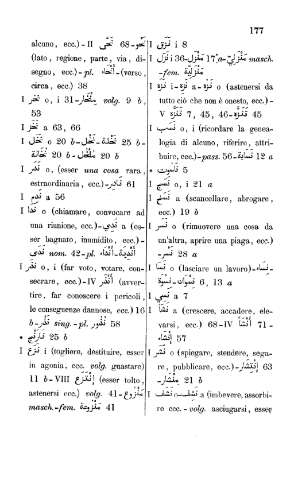 177
alcuno, ecc.) - II نَحَّى 68 - نَحْو
(lato, regione, parte, via, di-
segno, ecc.) - pl. أَنْحَاء - (verso,
circa, ecc.) 38
I نخر o, i 31 - volg. 9 b,
53
I a 63, 66
I نخل o 20 b - 25 b -
20 b - 20 b
I ندر o, (esser una cosa rara,
estraordinaria, ecc.) - 61
I ندم a 56
I ندا o (chiamare, convocare ad
una riunione, ecc.) - a (es-
ser bagnato, inumidito, ecc.) -
nom. 42 - pl.
I نذر o, i (far voto, votare, con-
secrare, ecc.) - IV (avver-
tire, far conoscere i pericoli,
le conseguenze dannose, ecc.) 16
b - sing. - pl. 58
25 b
I نزع i (togliere, destituire, esser
in agonia, ecc. volg. guastare)
11 b - VIII (esser tolto,
astenersi ecc.) volg. 41 -
masch.-fem. 41
I نزق i 8
I نزل i 36 - 17 a - masch.
- fem.
I i - a - o (astenersi da
tutto ciò che non è onesto, ecc.) -
V 7, 45, 46 - 45
I نسب o, i (ricordare la genea-
logia di alcuno, riferire, attri-
buire, ecc.) - pass. 56 - 12 a
5
I نسج o, i 21 a
I نسخ a (scancellare, abrogare,
ecc.) 19 b
I نسر o (rimuovere una cosa da
un'altra, aprire una piaga, ecc.)
28 -
I نسا o (lasciare un lavoro) -
6, 13 a
I نسي a 7
I نشأ a (crescere, accadere, ele-
varsi, ecc.) 68 - IV 71 -
57
I نشر o (spiegare, stendere, sega-
re, pubblicare, ecc.) - 63
21 b
I نشف a (imbevere, assorbi-
re ecc. - volg. asciugarsi, esser